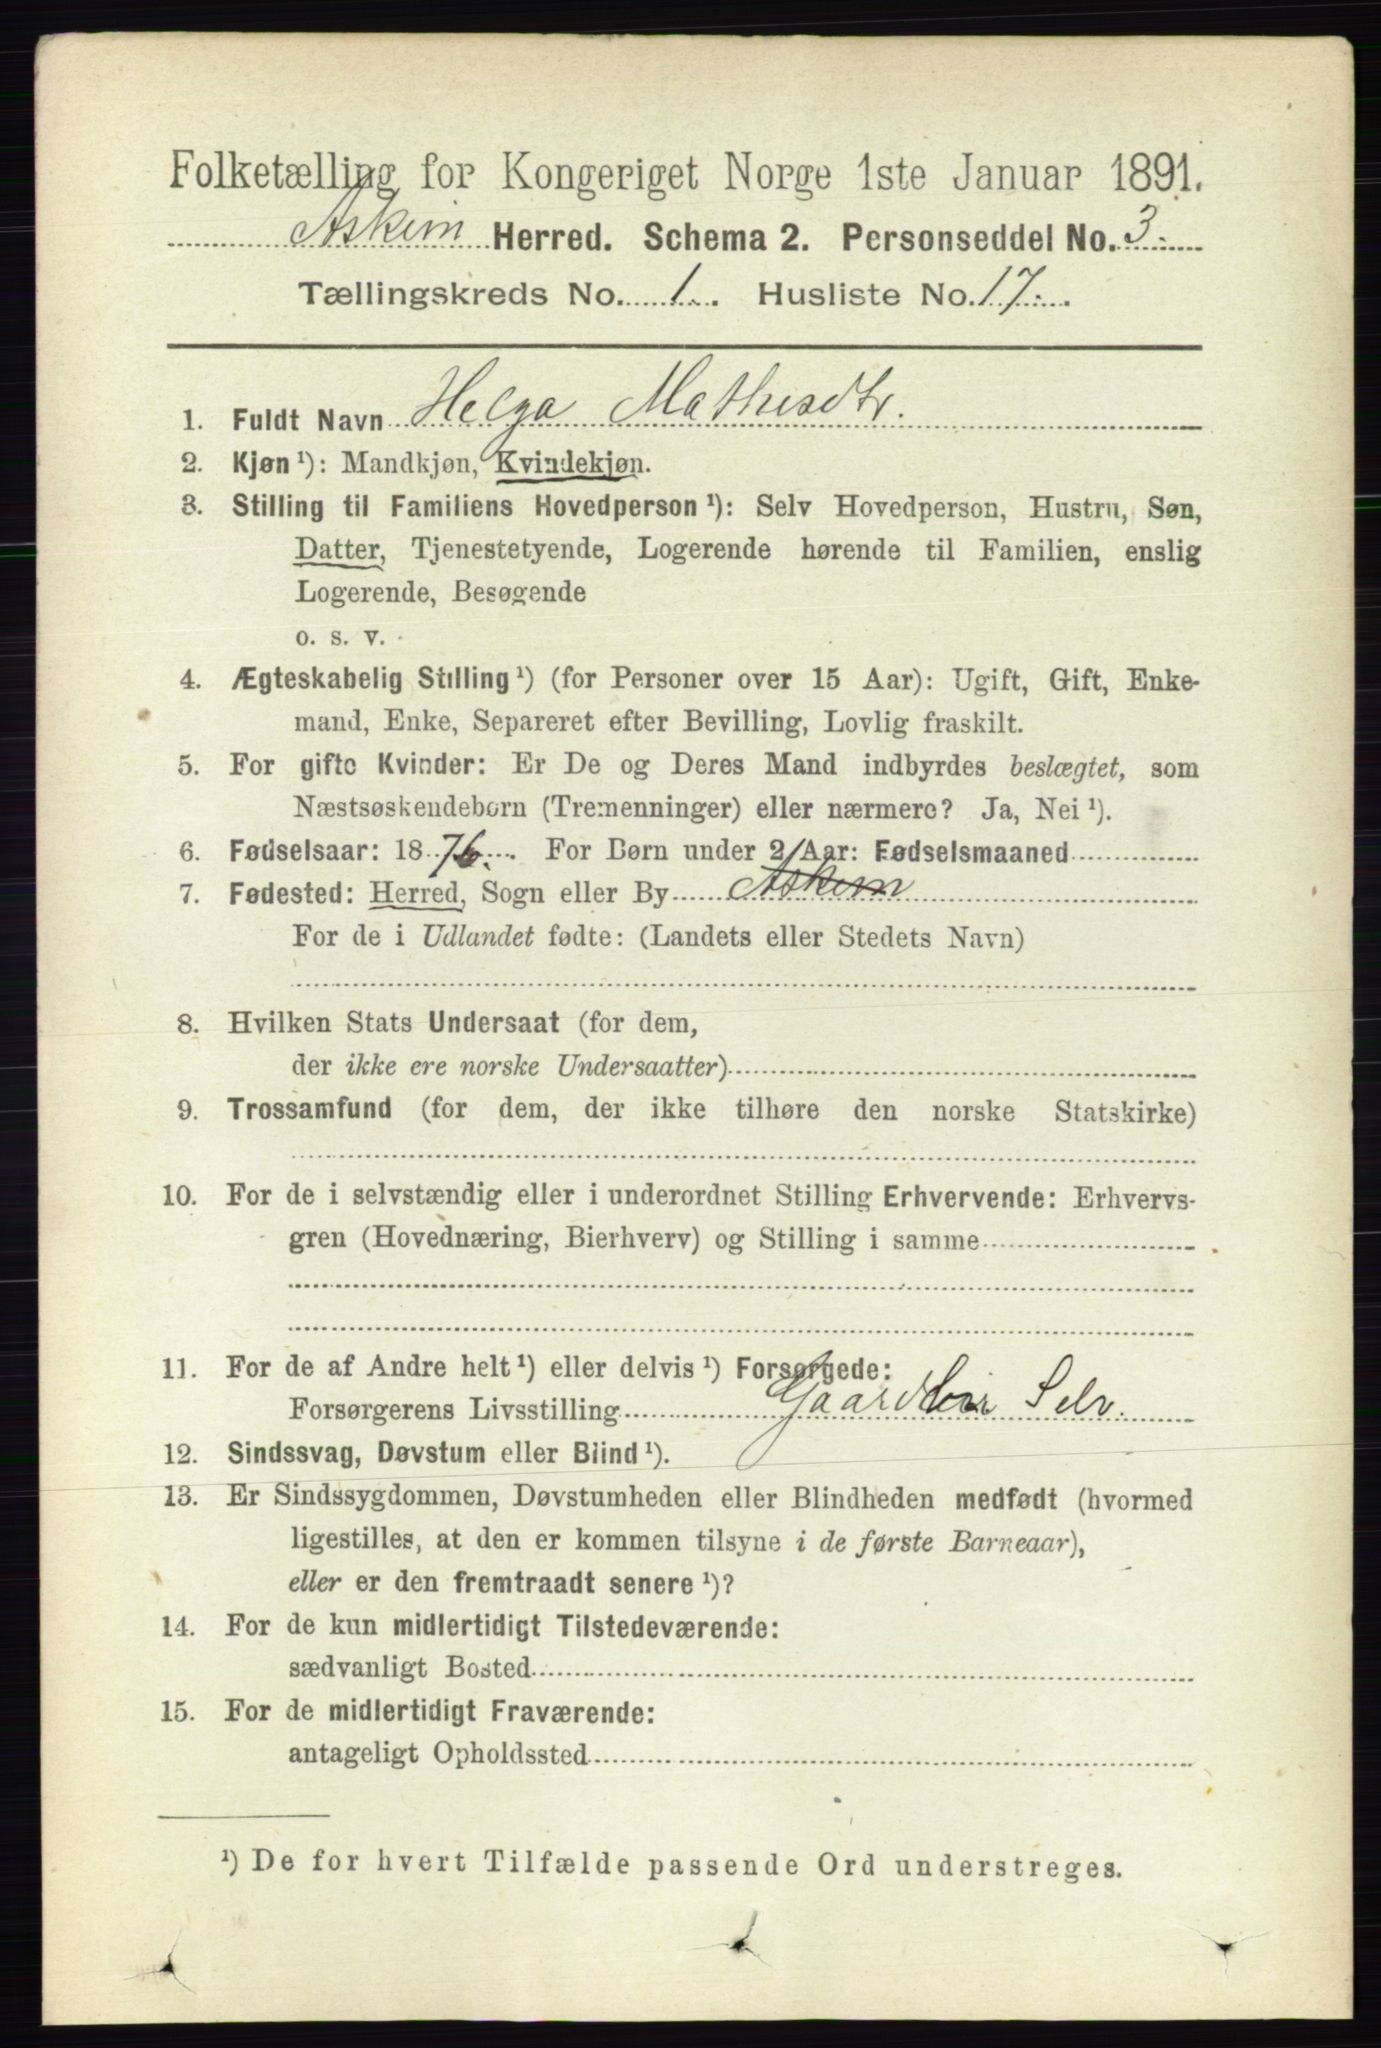 Folketælling for Kongeriget Norge 1ste Januar 1891.
Askim Herred. Schema 2. Personseddel No. 3.
Tællingskreds No. 1. Husliste No. 17.
1. Fuldt Navn Helga Mathisdtr.
2. Kjøn ¹): Mandkjøn, Kvindekjøn.
3. Stilling til Familiens Hovedperson ¹): Selv Hovedperson, Hustru, Søn,
Datter, Tjenestetyende, Logerende hørende til Familien, enslig
Logerende, Besøgende
o. s. v.
4. Ægteskabelig Stilling ¹) (for Personer over 15 Aar): Ugift, Gift, Enke-
mand, Enke, Separeret efter Bevilling, Lovlig fraskilt.
5. For gifte Kvinder: Er De og Deres Mand indbyrdes beslægtet, som
Næstsøskendebørn (Tremenninger) eller nærmere? Ja, Nei ¹).
6. Fødselsaar: 1876. For Børn under 2 Aar: Fødselsmaaned
7. Fødested: Herred, Sogn eller By Askim
For de i Udlandet fødte: (Landets eller Stedets Navn)
8. Hvilken Stats Undersaat (for dem,
der ikke ere norske Undersaatter)
9. Trossamfund (for dem, der ikke tilhøre den norske Statskirke)
10. For de i selvstændig eller i underordnet Stilling Erhvervende: Erhvervs-
gren (Hovednæring, Bierhverv) og Stilling i samme
11. For de af Andre helt ¹) eller delvis ¹) Forsørgede:
Forsørgerens Livsstilling Selv.
12. Sindssvag, Døvstum eller Blind ¹).
13. Er Sindssygdommen, Døvstumheden eller Blindheden medfødt (hvormed
ligestilles, at den er kommen tilsyne i de første Barneaar),
eller er den fremtraadt senere ¹)?
14. For de kun midlertidigt Tilstedeværende:
sædvanligt Bosted
15. For de midlertidigt Fraværende:
antageligt Opholdssted
¹) De for hvert Tilfælde passende Ord understreges.